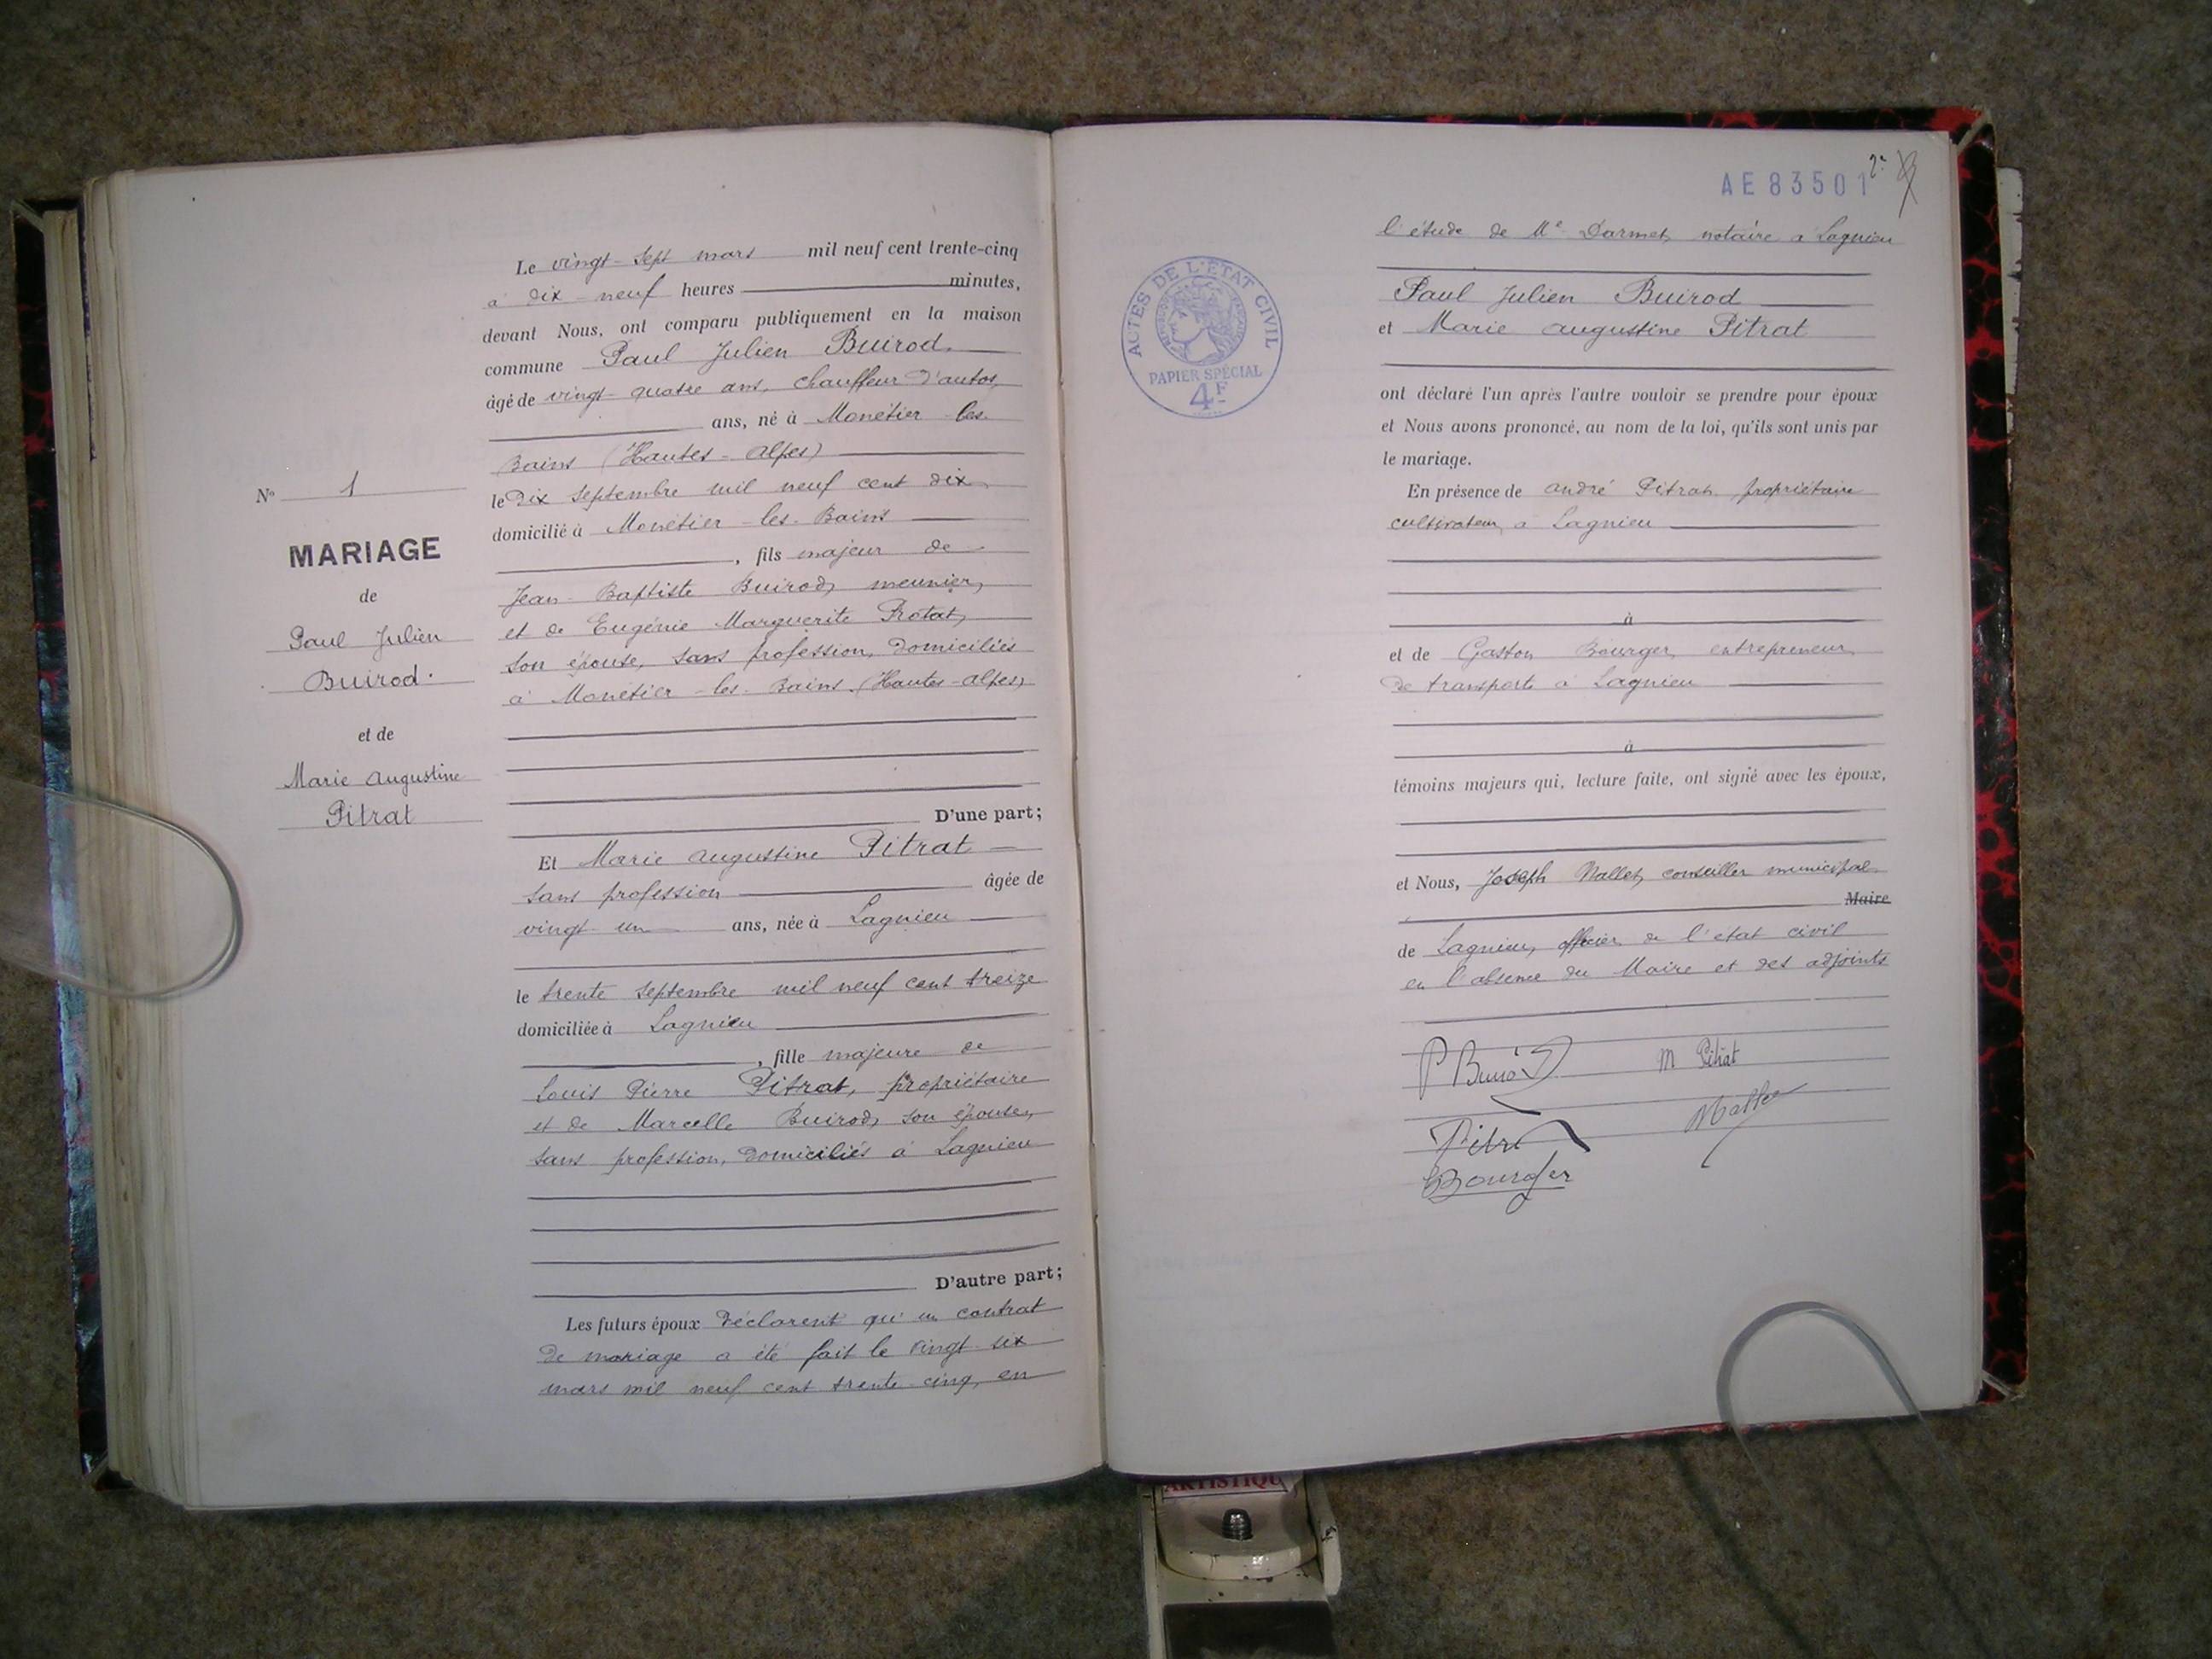 N° 1
MARIAGE
de
Paul Julien
Buirod.
et de
Marie Augustine
Pitrat
Le vingt-sept mars mil neuf cent trente-cinq
à dix-neuf heures minutes,
devant Nous, ont comparu publiquement en la maison
commune Paul Julien Buirod,
âgé de vingt-quatre ans, chauffeur d'autos,
ans, né à Monétier-les-
Bains (Hautes-Alpes)
le dix septembre mil neuf cent dix,
domicilié à Monétier-les-Bains
, fils majeur de
Jean-Baptiste Buirod, meunier,
et de Eugénie Marguerite Protat,
son épouse, sans profession, domiciliés
à Monétier-les-Bains (Hautes-Alpes)
D'une part;
Et Marie Augustine Pitrat
sans profession âgée de
vingt-un ans, née à Lagnieu
le trente septembre mil neuf cent treize
domiciliée à Lagnieu
, fille majeure de
Louis Pierre Pitrat, propriétaire
et de Marcelle Buirod, son épouse,
sans profession, domiciliés à Lagnieu
D'autre part;
Les futurs époux déclarent qu'un contrat
de mariage a été fait le vingt-six
mars mil neuf cent trente-cinq, en
AE 83501
ACTES DE L'ÉTAT CIVIL
PAPIER SPÉCIAL
4F
l'étude de Me Darmet, notaire à Lagnieu
Paul Julien Buirod
et Marie Augustine Pitrat
ont déclaré l'un après l'autre vouloir se prendre pour époux
et Nous avons prononcé, au nom de la loi, qu'ils sont unis par
le mariage.
En présence de André Pitrat, propriétaire
cultivateur, à Lagnieu
à
et de Gaston Bourger, entrepreneur
de transports à Lagnieu
à
témoins majeurs qui, lecture faite, ont signé avec les époux,
et Nous, Joseph Mallet, conseiller municipal
Maire
de Lagnieu, officier de l'état civil
en l'absence du Maire et des adjoints
P Buirod M Pitrat
Pitrat Mallet
Bourger
ARTISTIQU